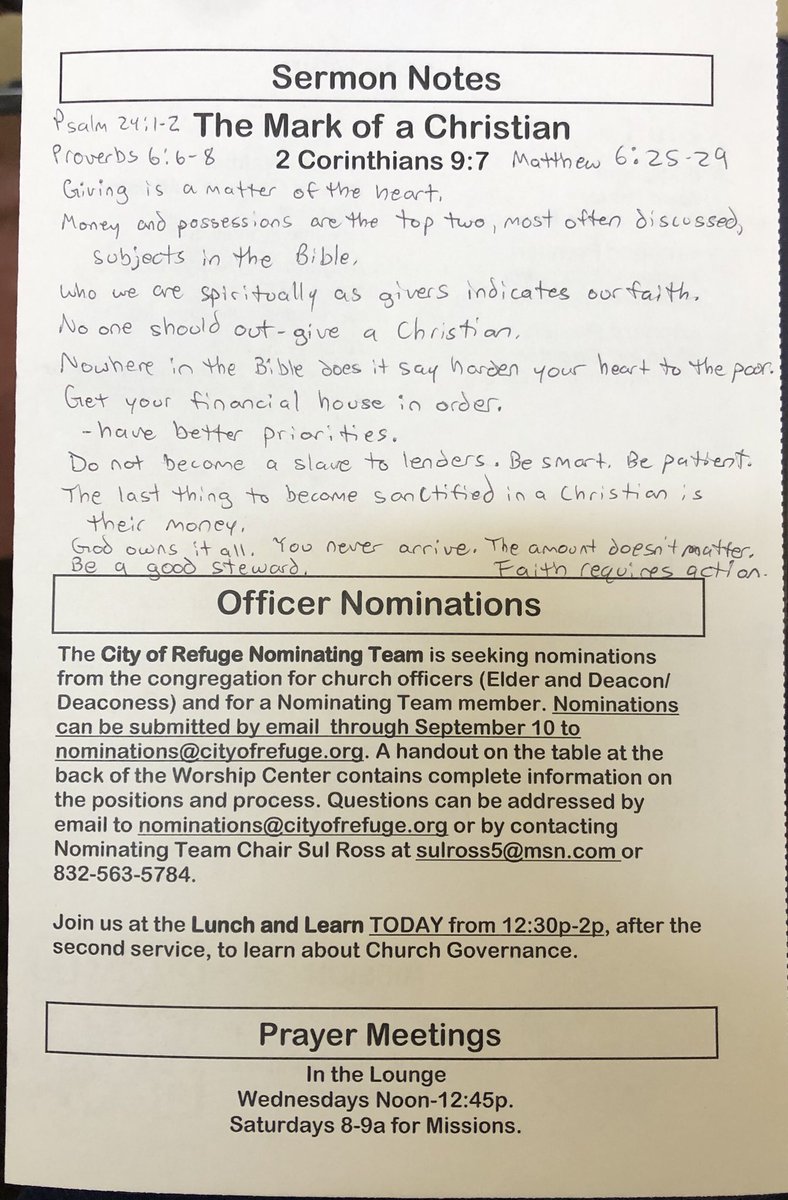 Sermon Notes
Psalm 24:1-2 The Mark of a Christian
Proverbs 6:6-8 2 Corinthians 9:7 Matthew 6:25-29
Giving is a matter of the heart.
Money and possessions are the top two, most often discussed,
subjects in the Bible.
Who we are spiritually as givers indicates our faith.
No one should out-give a Christian.
Nowhere in the Bible does it say harden your heart to the poor.
Get your financial house in order.
-have better priorities.
Do not become a slave to lenders. Be smart. Be patient.
The last thing to become sanctified in a Christian is
their money.
God owns it all. You never arrive. The amount doesn't matter.
Be a good steward. Faith requires action.
Officer Nominations
The City of Refuge Nominating Team is seeking nominations
from the congregation for church officers (Elder and Deacon/
Deaconess) and for a Nominating Team member. Nominations
can be submitted by email through September 10 to
nominations@cityofrefuge.org. A handout on the table at the
back of the Worship Center contains complete information on
the positions and process. Questions can be addressed by
email to nominations@cityofrefuge.org or by contacting
Nominating Team Chair Sul Ross at sulross5@msn.com or
832-563-5784.
Join us at the Lunch and Learn TODAY from 12:30p-2p, after the
second service, to learn about Church Governance.
Prayer Meetings
In the Lounge
Wednesdays Noon-12:45p.
Saturdays 8-9a for Missions.